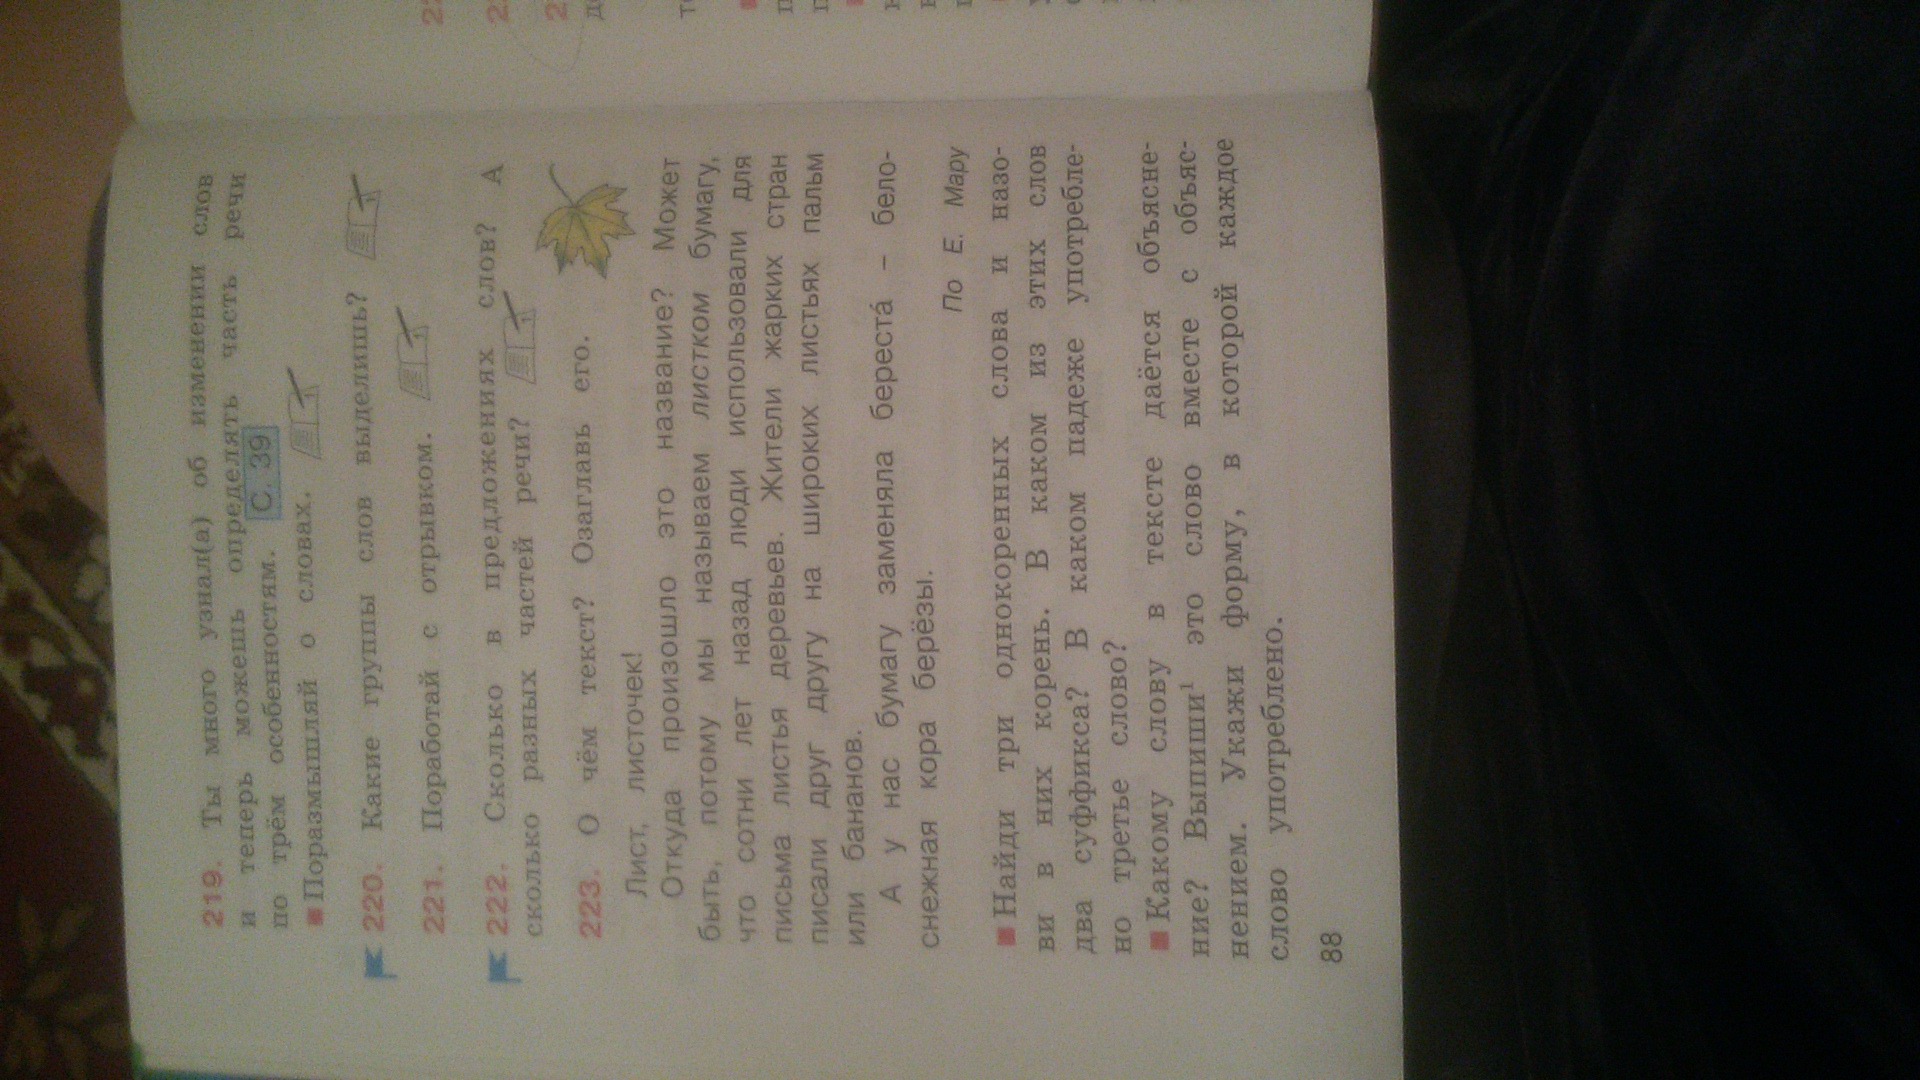 219. Ты много узнал(а) об изменении слов
и теперь можешь определять часть речи
по трём особенностям. С. 39
Поразмышляй о словах.
220. Какие группы слов выделишь?
221. Поработай с отрывком.
222. Сколько в предложениях слов? А
сколько разных частей речи?
223. О чём текст? Озаглавь его.
Лист, листочек!
Откуда произошло это название? Может
быть, потому мы называем листком бумагу,
что сотни лет назад люди использовали для
письма листья деревьев. Жители жарких стран
писали друг другу на широких листьях пальм
или бананов.
А у нас бумагу заменяла береста́ – бело-
снежная кора берёзы.
По Е. Мару
Найди три однокоренных слова и назо-
ви в них корень. В каком из этих слов
два суффикса? В каком падеже употребле-
но третье слово?
Какому слову в тексте даётся объясне-
ние? Выпиши¹ это слово вместе с объяс-
нением. Укажи форму, в которой каждое
слово употреблено.
88